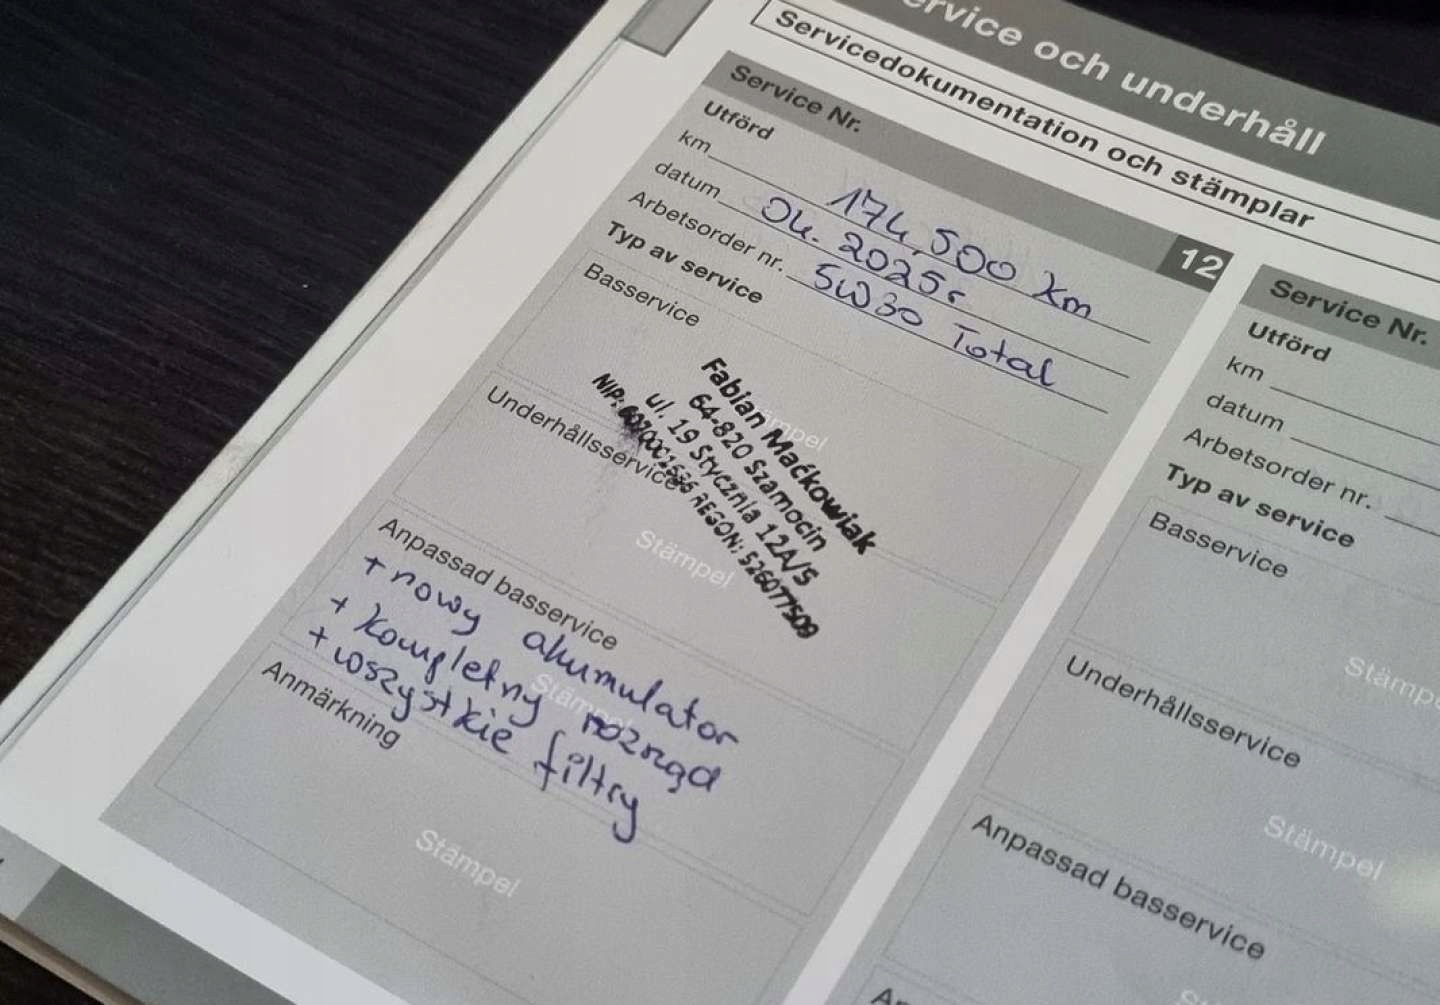 Service och underhåll
Servicedokumentation och stämplar
Service Nr. 12
Utförd
km 174,500 km
datum 04. 2025r
Arbetsorder nr. 5W30 Total
Typ av service
Basservice
Stämpel
Fabian Maćkowiak
64-820 Szamocin
ul. 19 Stycznia 12A/5
NIP: REGON: 526077509
Underhållsservice
Stämpel
Anpassad basservice
+ nowy akumulator
+ kompletny rozrząd
+ wszystkie filtry
Stämpel
Anmärkning
Stämpel
Service Nr.
Utförd
km
datum
Arbetsorder nr.
Typ av service
Basservice
Stämpel
Underhållsservice
Stämpel
Anpassad basservice